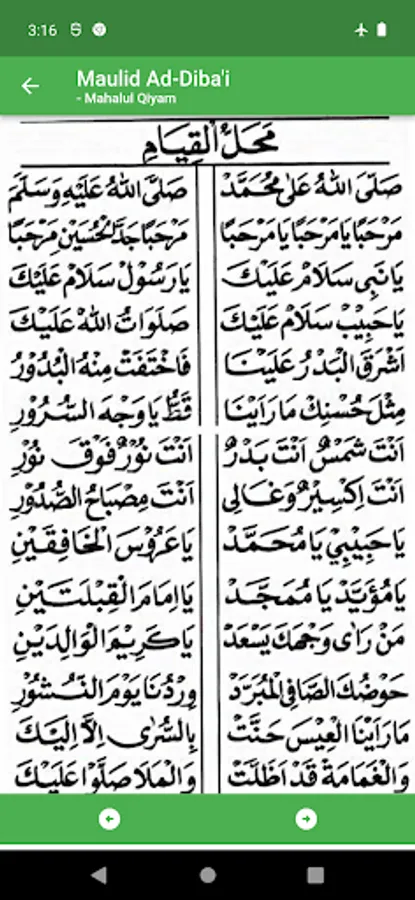 3:16
Maulid Ad-Diba'i
- Mahalul Qiyam
مَحَلُّ الْقِيَامِ
صَلَّى اللهُ عَلٰى مُحَمَّدْ صَلَّى اللهُ عَلَيْهِ وَسَلَّمَ
مَرْحَبًا يَا مَرْحَبًا يَا مَرْحَبًا مَرْحَبًا جَدَّ الْحُسَيْنِ مَرْحَبًا
يَا نَبِى سَلَامْ عَلَيْكَ يَا رَسُوْلْ سَلَامْ عَلَيْكَ
يَا حَبِيْبْ سَلَامْ عَلَيْكَ صَلَوَاتُ اللهْ عَلَيْكَ
اَشْرَقَ الْبَدْرُ عَلَيْنَا فَاخْتَفَتْ مِنْهُ الْبُدُوْرُ
مِثْلَ حُسْنِكْ مَا رَاَيْنَا قَطُّ يَا وَجْهَ السُّرُوْرِ
اَنْتَ شَمْسٌ اَنْتَ بَدْرٌ اَنْتَ نُوْرٌ فَوْقَ نُوْرٍ
اَنْتَ اِكْسِيْرٌ وَغَالِى اَنْتَ مِصْبَاحُ الصُّدُوْرِ
يَا حَبِيْبِيْ يَا مُحَمَّدْ يَا عَرُوْسَ الْخَافِقَيْنِ
يَا مُؤَيَّدْ يَا مُمَجَّدْ يَا اِمَامَ الْقِبْلَتَيْنِ
مَنْ رَاٰى وَجْهَكَ يَسْعَدْ يَا كَرِيْمَ الْوَالِدَيْنِ
حَوْضُكَ الصَّافِى الْمُبَرَّدْ وِرْدُنَا يَوْمَ النُّشُوْرِ
مَا رَاَيْنَا الْعِيْسَ حَنَّتْ بِالسُّرٰى اِلَّا اِلَيْكَ
وَالْغَمَامَةْ قَدْ اَظَلَّتْ وَالْمَلَا صَلَّوْا عَلَيْكَ